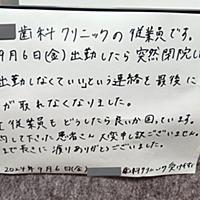 歯科クリニックの従業員です。
9月6日(金)出勤したら突然閉院し
出勤しなくていいという連絡を最後に
が取れなくなりました。
従業員もどうしたら良いか困っています。
して下さった患者さん大変申し訳ございません。
まで長きに渡りありがとうございました。
2024年9月6日(金)
歯科クリニック受付